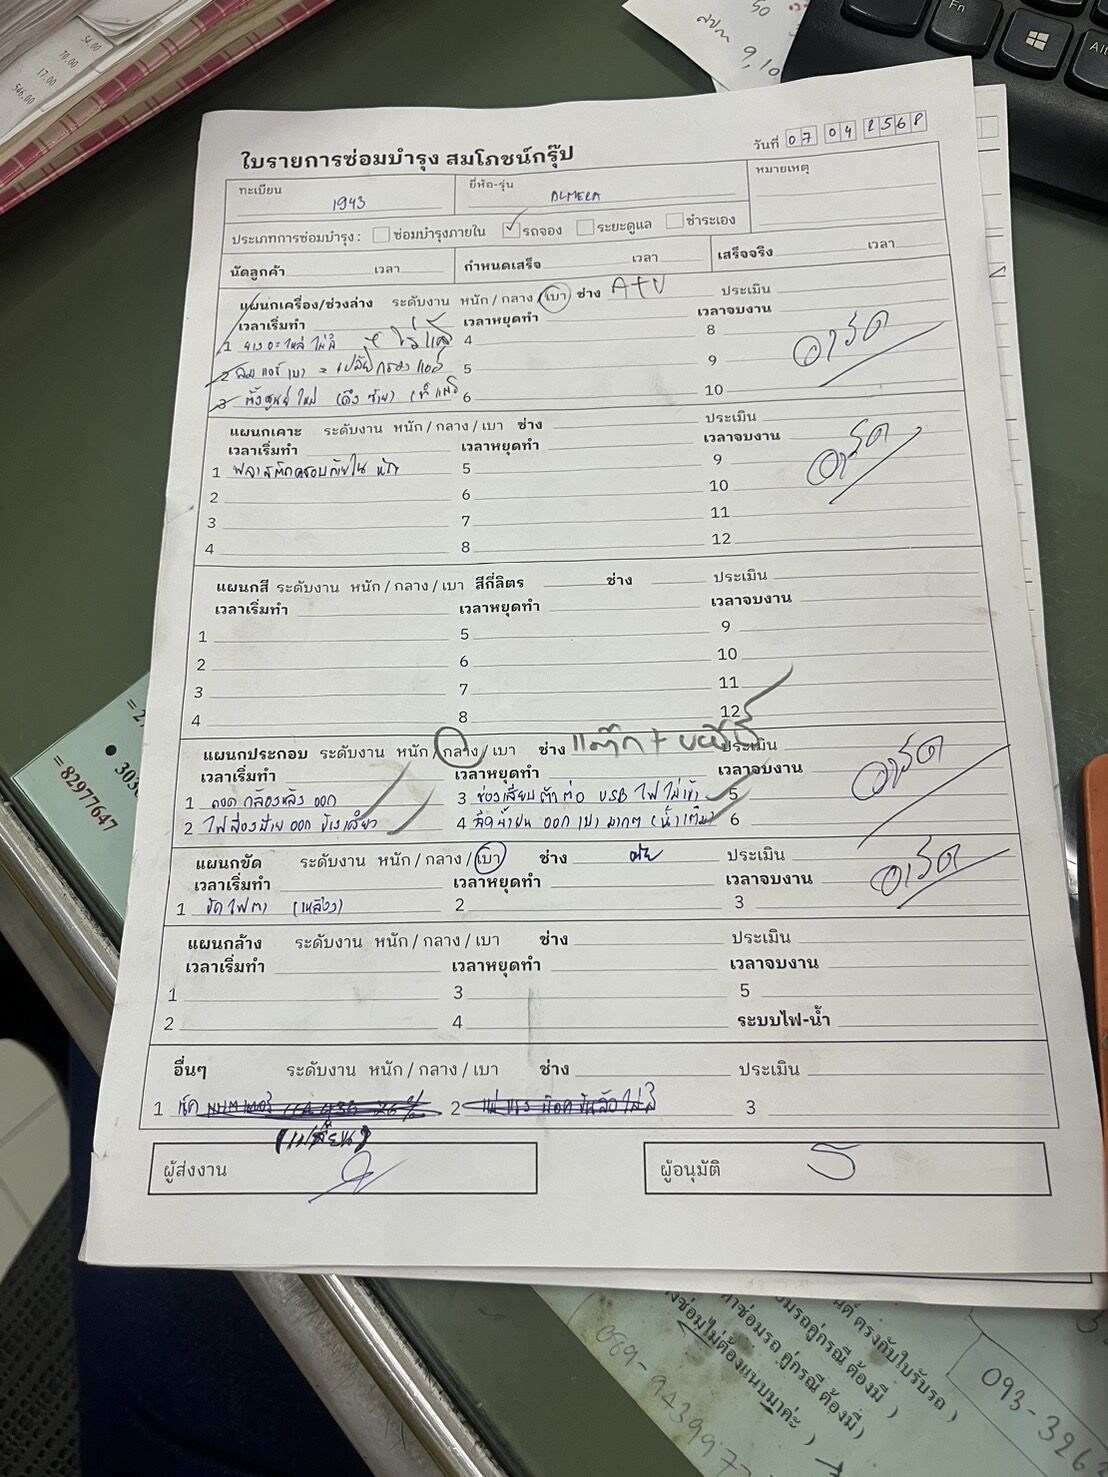 54.00
70.00
17.00
546.00
50
9,10
Fn
Alt
ใบรายการซ่อมบำรุง สมโภชน์กรุ๊ป
วันที่ 07 04 2568
ทะเบียน 1943 ยี่ห้อ-รุ่น ALMERA หมายเหตุ
ประเภทการซ่อมบำรุง : ซ่อมบำรุงภายใน รถจอง ระยะดูแล ชำระเอง
นัดลูกค้า เวลา กำหนดเสร็จ เวลา เสร็จจริง เวลา
แผนกเครื่อง/ช่วงล่าง ระดับงาน หนัก / กลาง / เบา ช่าง ประเมิน
เวลาเริ่มทำ เวลาหยุดทำ เวลาจบงาน
1 4 8
2 ลมแอร์เบา = เปลี่ยนกรองแอร์ 5 9
3 ตั้งศูนย์ใหม่ (ดึงซ้าย) 6 10
แผนกเคาะ ระดับงาน หนัก / กลาง / เบา ช่าง ประเมิน
เวลาเริ่มทำ เวลาหยุดทำ เวลาจบงาน
1 พลาสติกครอบภายใน หัก 5 9
2 6 10
3 7 11
4 8 12
แผนกสี ระดับงาน หนัก / กลาง / เบา สีกี่ลิตร ช่าง ประเมิน
เวลาเริ่มทำ เวลาหยุดทำ เวลาจบงาน
1 5 9
2 6 10
3 7 11
4 8 12
แผนกประกอบ ระดับงาน หนัก / กลาง / เบา ช่าง ประเมิน
เวลาเริ่มทำ เวลาหยุดทำ เวลาจบงาน
1 ถอดกล้องหลังออก 3 ช่องเสียบตัวต่อ USB ไฟไม่เข้า 5
2 ไฟส่องป้ายออกข้างเดียว 4 ฉีดน้ำฝนออกเบามากๆ (น้ำเต็ม) 6
แผนกขัด ระดับงาน หนัก / กลาง / เบา ช่าง ประเมิน
เวลาเริ่มทำ เวลาหยุดทำ เวลาจบงาน
1 ขัดไฟตา (เหลือง) 2 3
แผนกล้าง ระดับงาน หนัก / กลาง / เบา ช่าง ประเมิน
เวลาเริ่มทำ เวลาหยุดทำ เวลาจบงาน
1 3 5
2 4 ระบบไฟ-น้ำ
อื่นๆ ระดับงาน หนัก / กลาง / เบา ช่าง ประเมิน
1 เช็ค 2 3
(เปลี่ยน)
ผู้ส่งงาน ผู้อนุมัติ
= 82977647
093-326